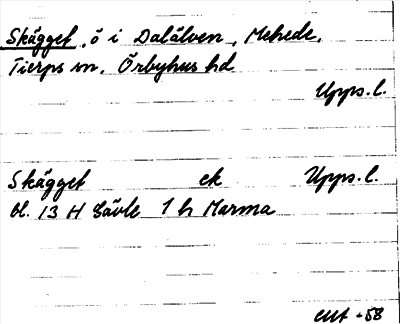 Skägget, ö i Dalälven, Mehede,
Tierps sn. Örbyhus hd
Upps. l.
Skägget ek Upps. l.
bl. 13 H Gävle 1 h Marma
-58